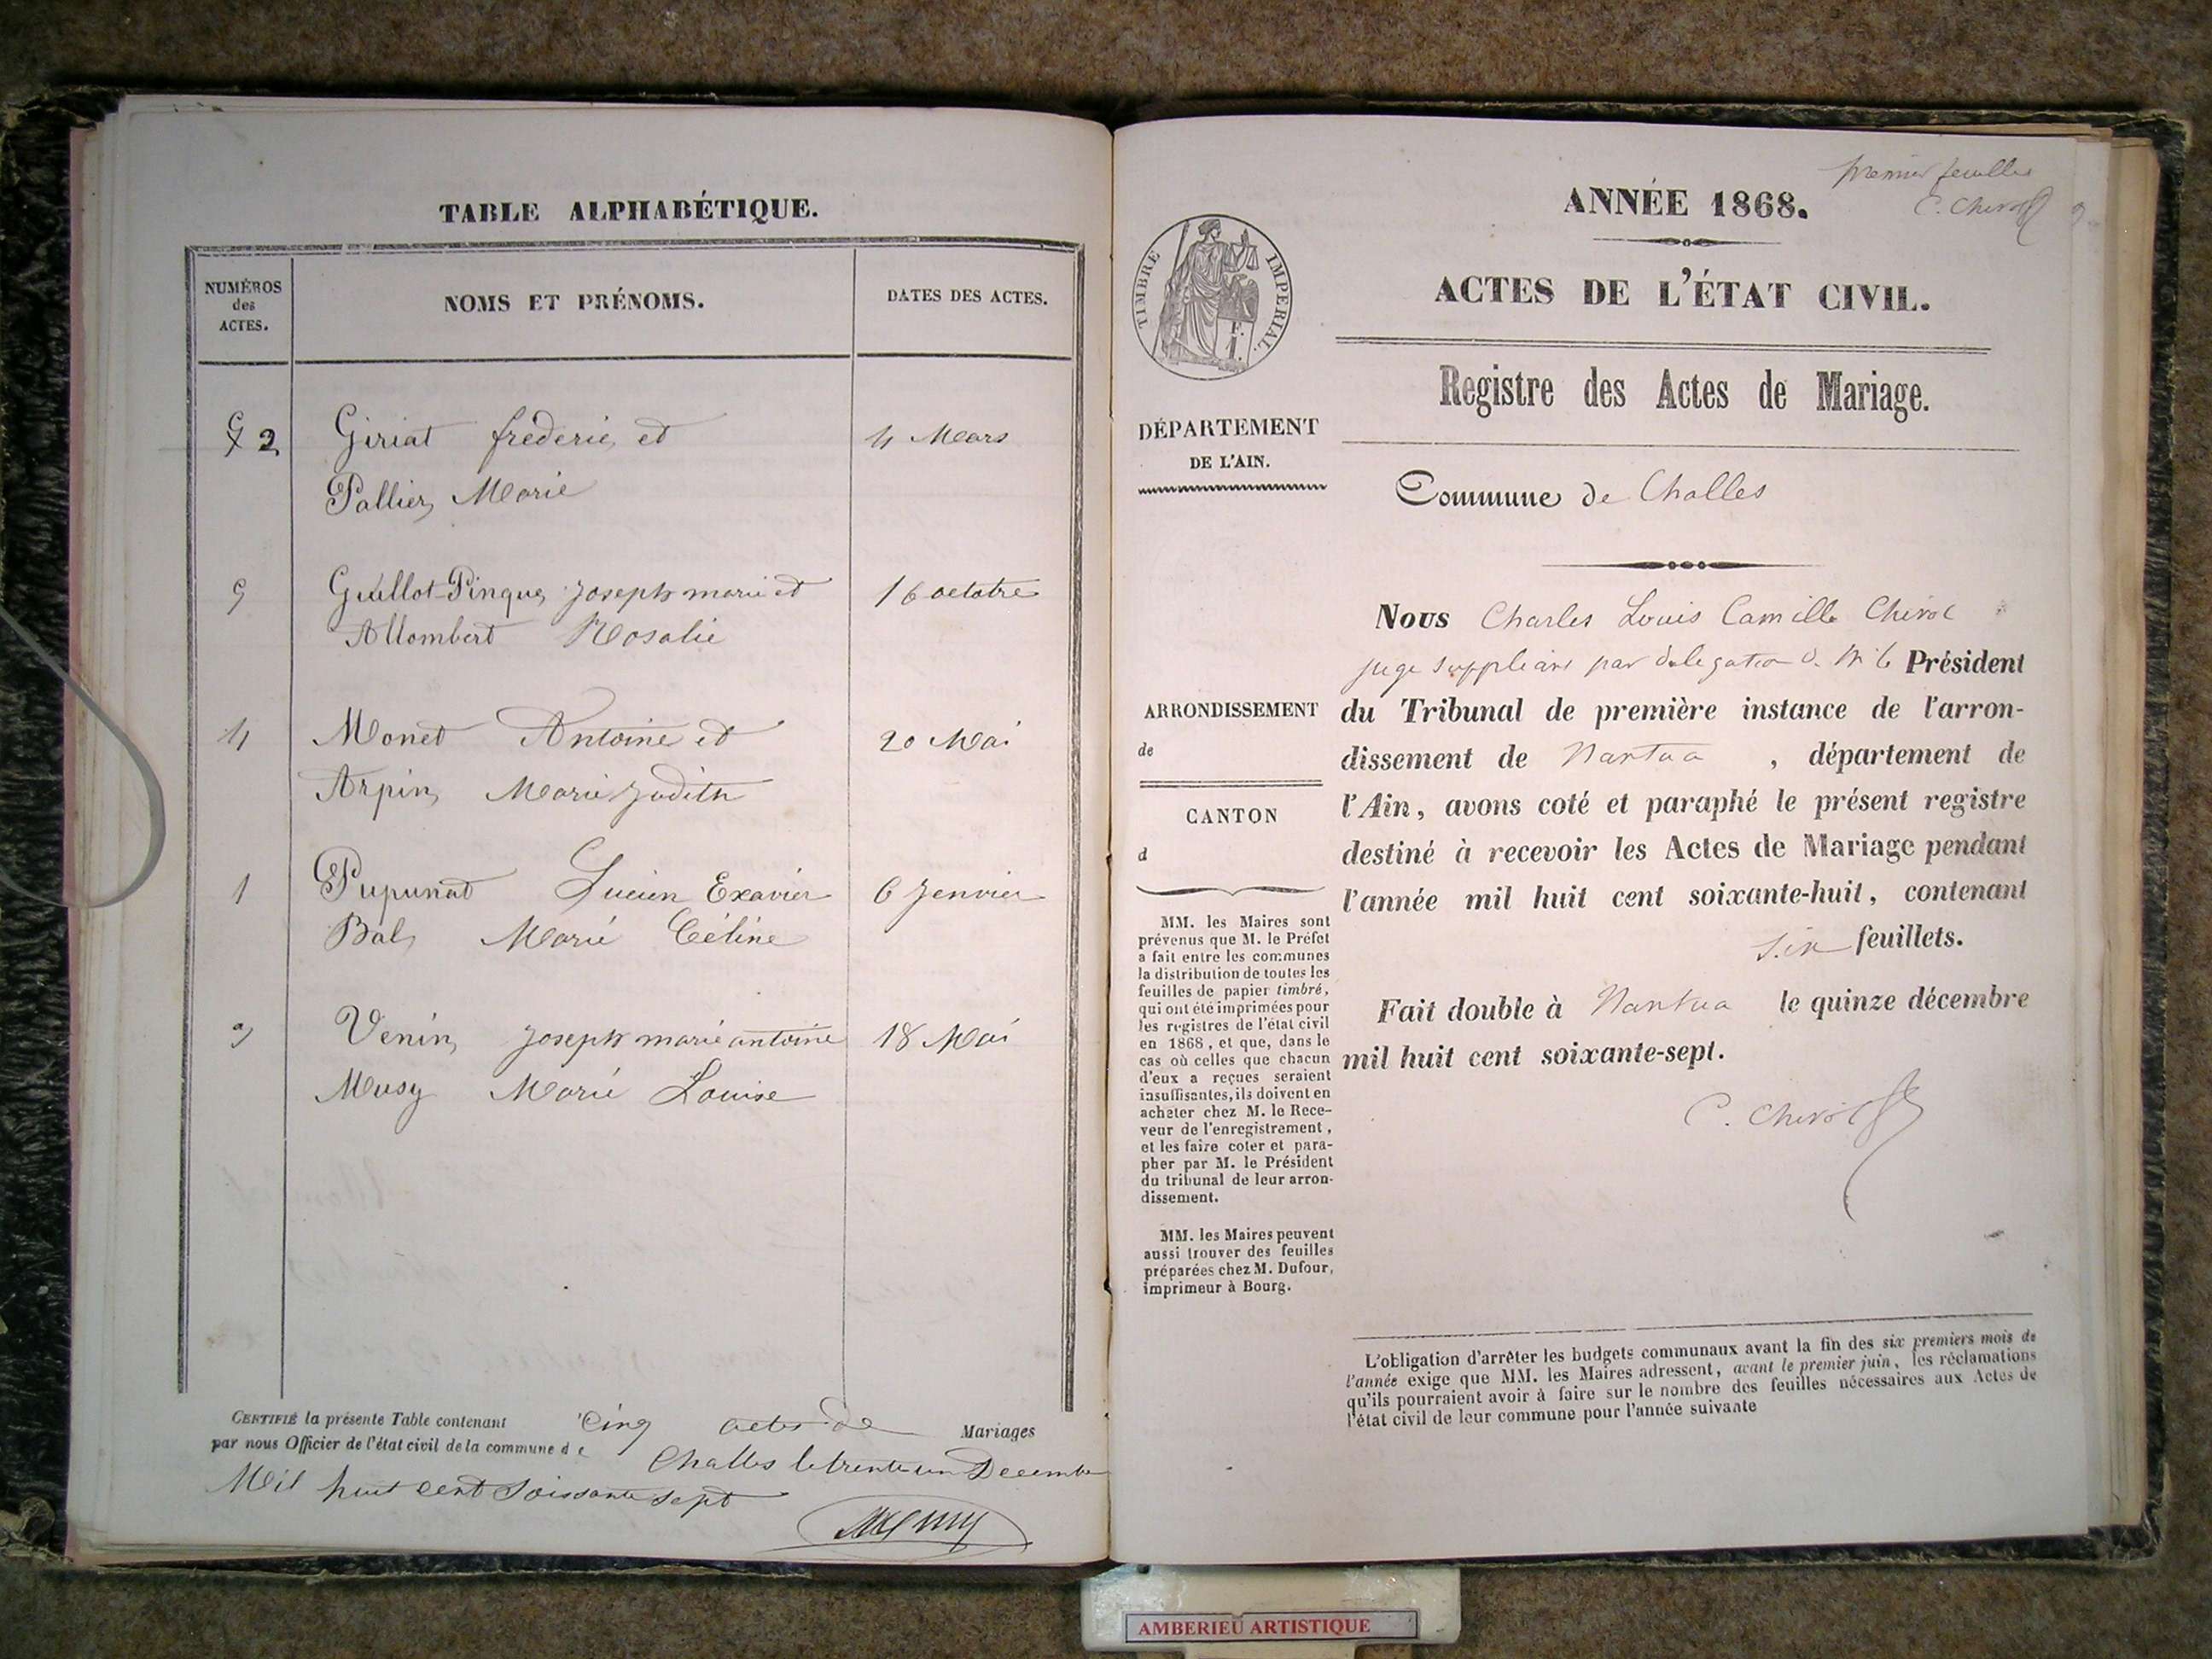 TABLE ALPHABÉTIQUE.
NUMÉROS
des
ACTES.
NOMS ET PRÉNOMS.
DATES DES ACTES.
2 Giriat frederic et 4 Mars
Pallier Marie
5 Guillot-Pinque Joseph marie et 16 octobre
Allombert Rosalie
4 Monet Antoine et 20 Mai
Arpin Marie Judith
1 Pupunat Lucien Exavier 6 Jenvier
Bal Marie Céline
3 Venin Joseph marie antoine 18 Mai
Musy Marie Louise
CERTIFIÉ la présente Table contenant Cinq actes de Mariages
par nous Officier de l'état civil de la commune de Challes le trente un Decembre
Mil huit cent soissante sept
premier feuillet
C. Chevoz
ANNÉE 1868.
ACTES DE L'ÉTAT CIVIL.
Registre des Actes de Mariage.
TIMBRE IMPÉRIAL.
DÉPARTEMENT
DE L'AIN.
Commune de Challes
Nous Charles Louis Camille
juge suppléant par délégation Président
ARRONDISSEMENT
de
du Tribunal de première instance de l'arron-
dissement de Nantua, département de
l'Ain, avons coté et paraphé le présent registre
destiné à recevoir les Actes de Mariage pendant
l'année mil huit cent soixante-huit, contenant
six feuillets.
Fait double à Nantua le quinze décembre
mil huit cent soixante-sept.
CANTON
d
MM. les Maires sont
prévenus que M. le Préfet
a fait entre les communes
la distribution de toutes les
feuilles de papier timbré,
qui ont été imprimées pour
les registres de l'état civil
en 1868, et que, dans le
cas où celles que chacun
d'eux a reçues seraient
insuffisantes, ils doivent en
acheter chez M. le Rece-
veur de l'enregistrement,
et les faire coter et para-
pher par M. le Président
du tribunal de leur arron-
dissement.
MM. les Maires peuvent
aussi trouver des feuilles
préparées chez M. Dufour,
imprimeur à Bourg.
L'obligation d'arrêter les budgets communaux avant la fin des six premiers mois de
l'année exige que MM. les Maires adressent, avant le premier juin, les réclamations
qu'ils pourraient avoir à faire sur le nombre des feuilles nécessaires aux Actes de
l'état civil de leur commune pour l'année suivante
AMBERIEU ARTISTIQUE